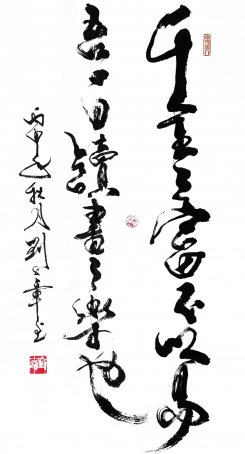 千金之富不以易
吾一日讀書之樂也
丙申年秋月劉之章書